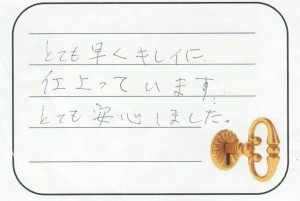 とても早くキレイに
仕上っています。
とても安心しました。